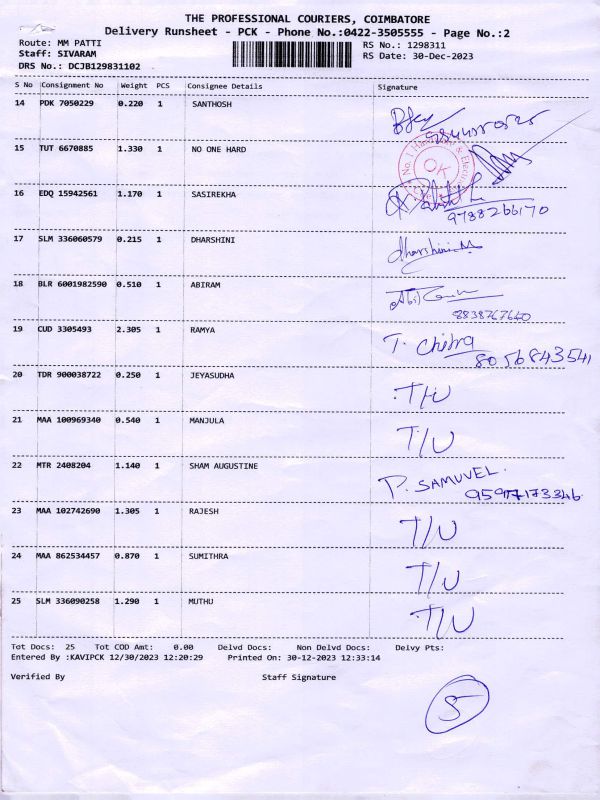 THE PROFESSIONAL COURIERS, COIMBATORE
Delivery Runsheet - PCK - Phone No.:0422-3505555 - Page No.:2
Route: MM PATTI
RS No.: 1298311
Staff: SIVARAM
RS Date: 30-Dec-2023
DRS No.: DCJB129831102
S No Consignment No Weight PCS Consignee Details Signature
14 PDK 7050229 0.220 1 SANTHOSH
15 TUT 6670885 1.330 1 NO ONE HARD
OK
16 EDQ 15942561 1.170 1 SASIREKHA
9788266170
17 SLM 336060579 0.215 1 DHARSHINI
dharshini M
18 BLR 6001982590 0.510 1 ABIRAM
8838767640
19 CUD 3305493 2.305 1 RAMYA T. Chitra
8056843541
20 TDR 900038722 0.250 1 JEYASUDHA T/U
21 MAA 100969340 0.540 1 MANJULA T/U
22 MTR 2408204 1.140 1 SHAM AUGUSTINE P. SAMUVEL.
23 MAA 102742690 1.305 1 RAJESH T/U
24 MAA 862534457 0.870 1 SUMITHRA T/U
25 SLM 336090258 1.290 1 MUTHU T/U
Tot Docs: 25 Tot COD Amt: 0.00 Delvd Docs: Non Delvd Docs: Delvy Pts:
Entered By :KAVIPCK 12/30/2023 12:20:29 Printed On: 30-12-2023 12:33:14
Verified By Staff Signature
5